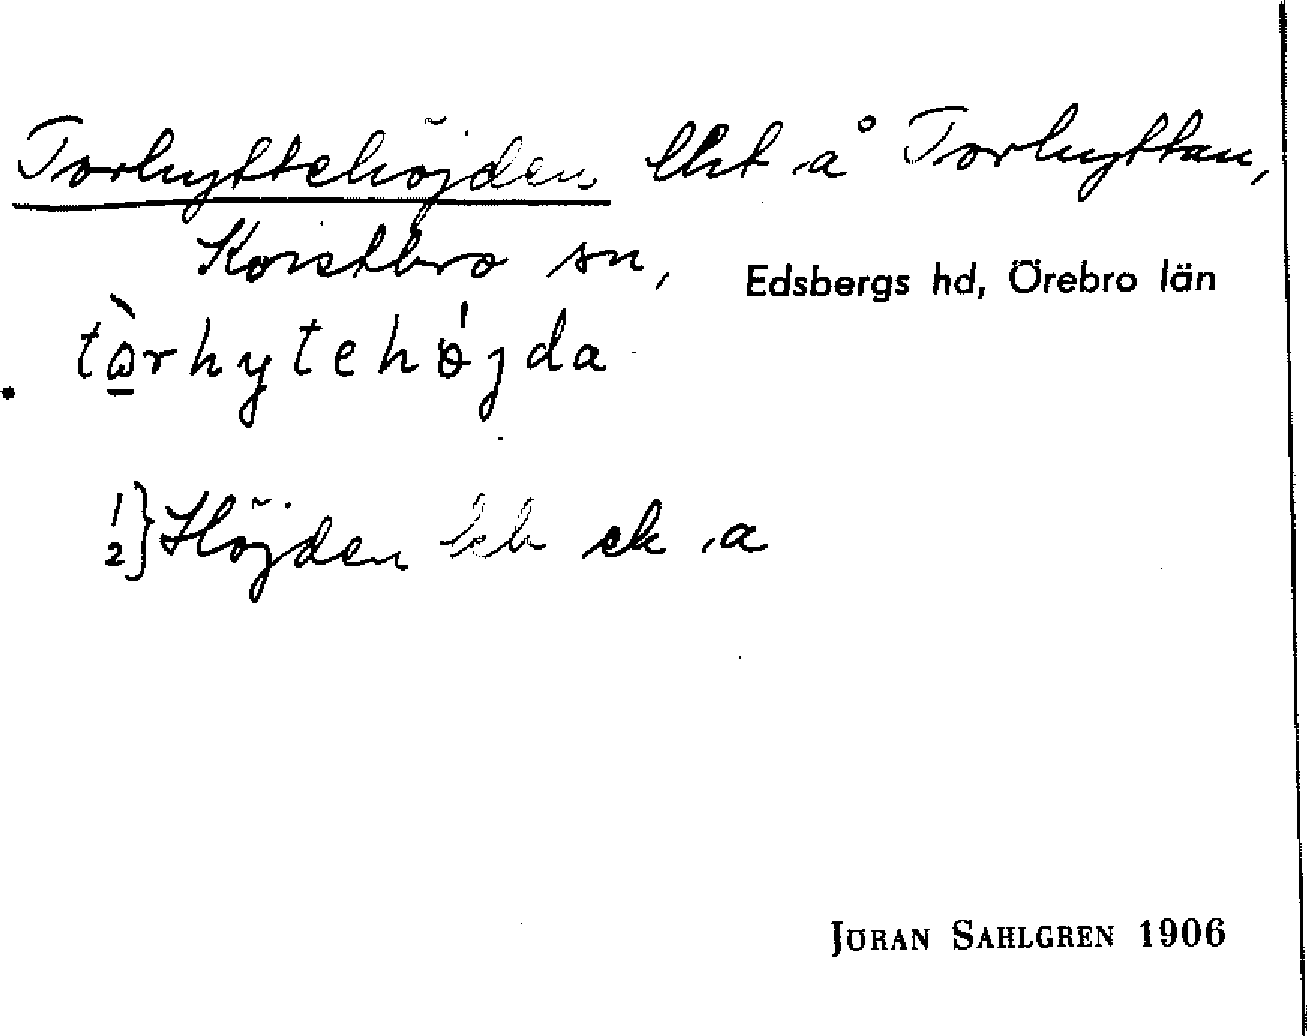 Torhyttehöjden lht å Torhyttan,
Kvistbro sn, Edsbergs hd, Örebro län
tò̱rhytehǿjda
1 2 } Höjden ek a
JÖRAN SAHLGREN 1906